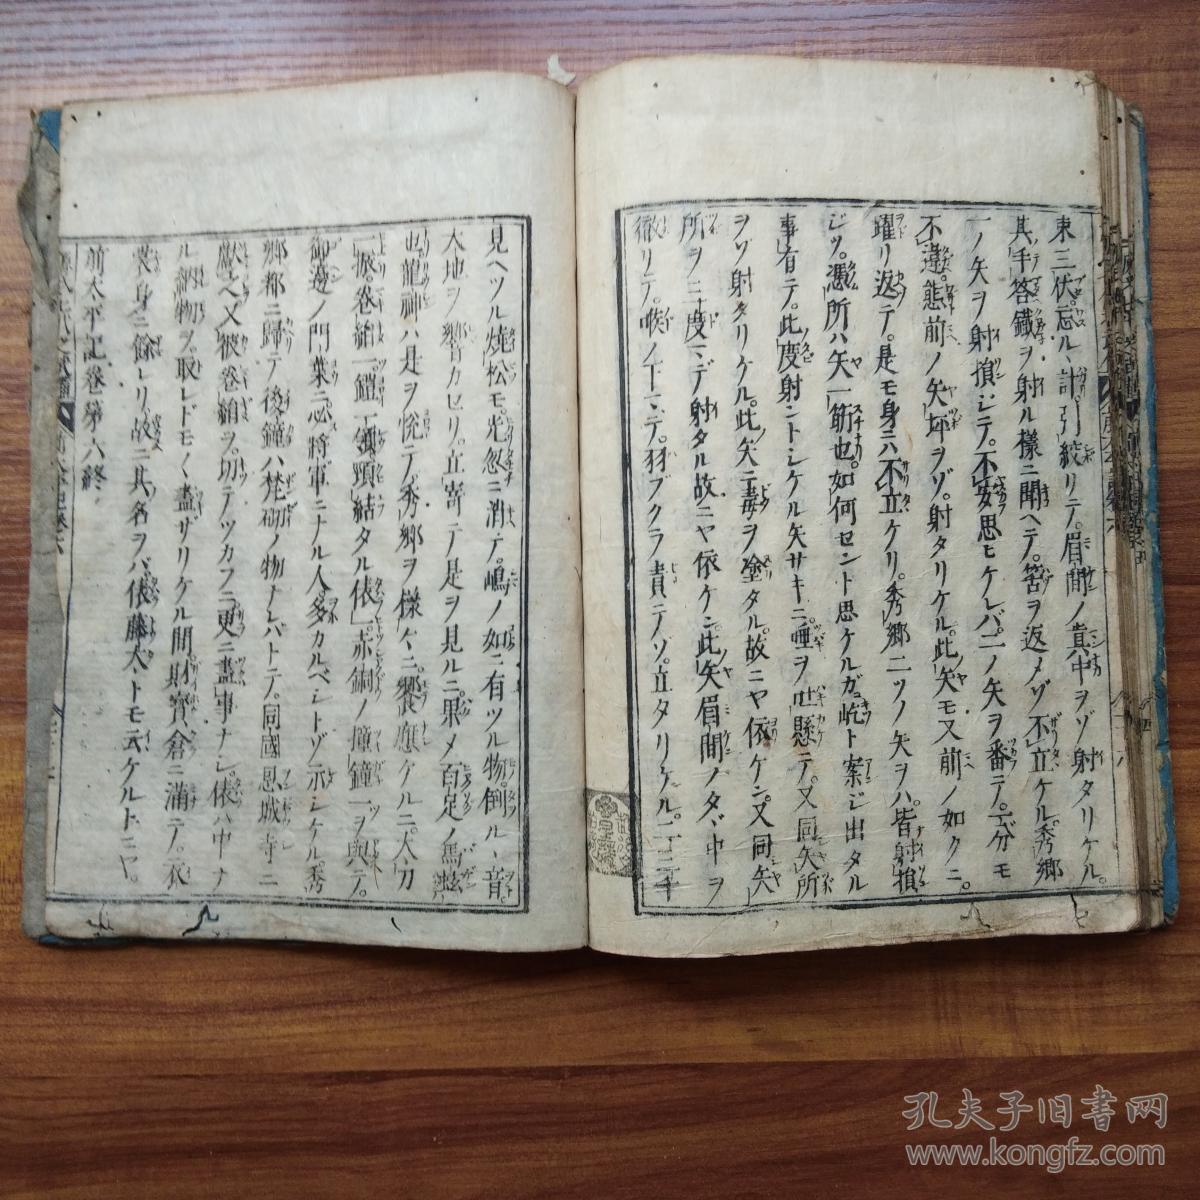 東三伏忘ルヽ計引絞リテ。眉間ノ真中ヲゾ射タリケル。
其手答鐵ヲ射ル様ニ聞ヘテ。筈ヲ返メゾ不立ケル。秀郷
一ノ矢ヲ射損ジテ。不安思ヒケレバ。二ノ矢ヲ番テ。一分モ
不違。態前ノ矢坪ヲゾ。射タリケル。此矢モ又前ノ如クニ。
躍リ返テ。是モ身ニハ不立ケリ。秀郷二ツノ矢ヲハ。皆射損
ジツ。憑所ハ矢一筋也。如何セント思ケルガ。屹ト案ジ出タル
事有テ。此度射ントシケル矢サキニ。唾ヲ吐懸テ。又同矢所
ヲゾ射タリケル。此矢ニ毒ヲ塗タル。故ニヤ依ケン。又同矢
所ヲ三度マデ射タル故ニヤ依ケン。此矢眉間ノタヾ中ヲ
徹リテ。喉ノ下マデ。羽ブクラ責テゾ。立タリケル。二三千
見ヘツル燒松モ。光忽ニ消テ。嶋ノ如ニ有ツル物倒ルヽ音。
大地ヲ響カセリ。立寄テ是ヲ見ルニ。果メ百足ノ馬蚿
也。龍神ハ是ヲ悦テ。秀郷ヲ様々ニ。饗應ケルニ。大刀
一振。巻絹一。鎧一領。頸結タル俵一。赤銅ノ撞鐘一ヲ與テ。
御邊ノ門葉ニ。必將軍ニナル人多カルベシトゾ示シケル。秀
郷都ニ歸テ後。鐘ハ梵砌ノ物ナレバトテ。同國恩城寺ニ
獻ヘ。又彼巻絹ヲ。切テツカフニ。更ニ盡事ナシ。俵ハ中ナ
ル納物ヲ取レドモ〱盡ザリケル間。財寳倉ニ滿テ。衣
裳身ニ餘レリ。故ニ其名ヲバ。俵藤太トモ云ケルトニヤ。
前太平記巻第六終
孔夫子旧书网
www.kongfz.com